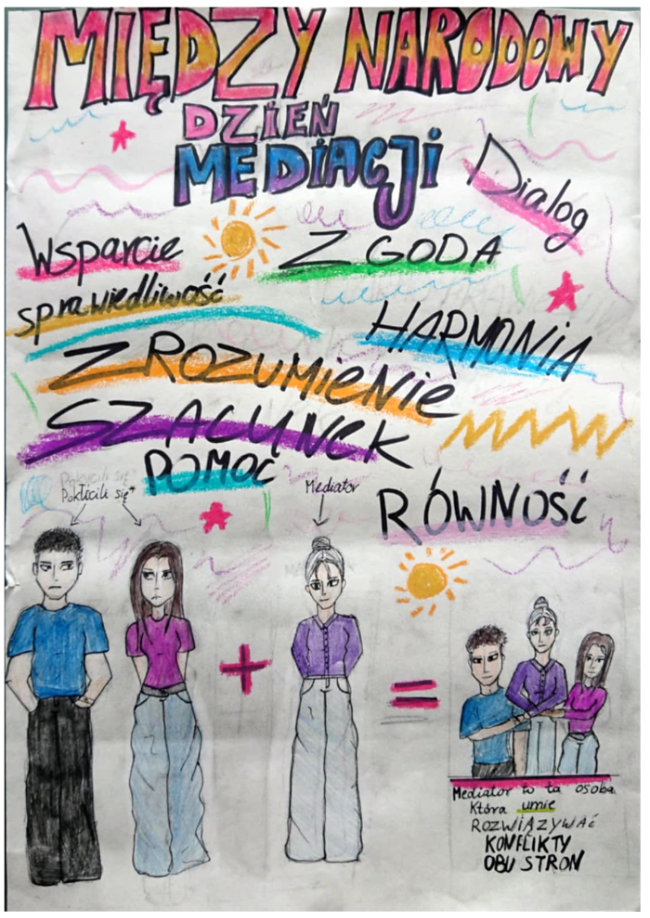 MIĘDZY NARODOWY
DZIEŃ
MEDIACJI
Dialog
Wsparcie
ZGODA
sprawiedliwość
HARMONIA
ZROZUMIENIE
SZACUNEK
POMOC
Pokłócili się
Mediator
RÓWNOŚĆ
+
=
Mediator to ta osoba
Która umie
ROZWIĄZYWAĆ
KONFLIKTY
OBU STRON